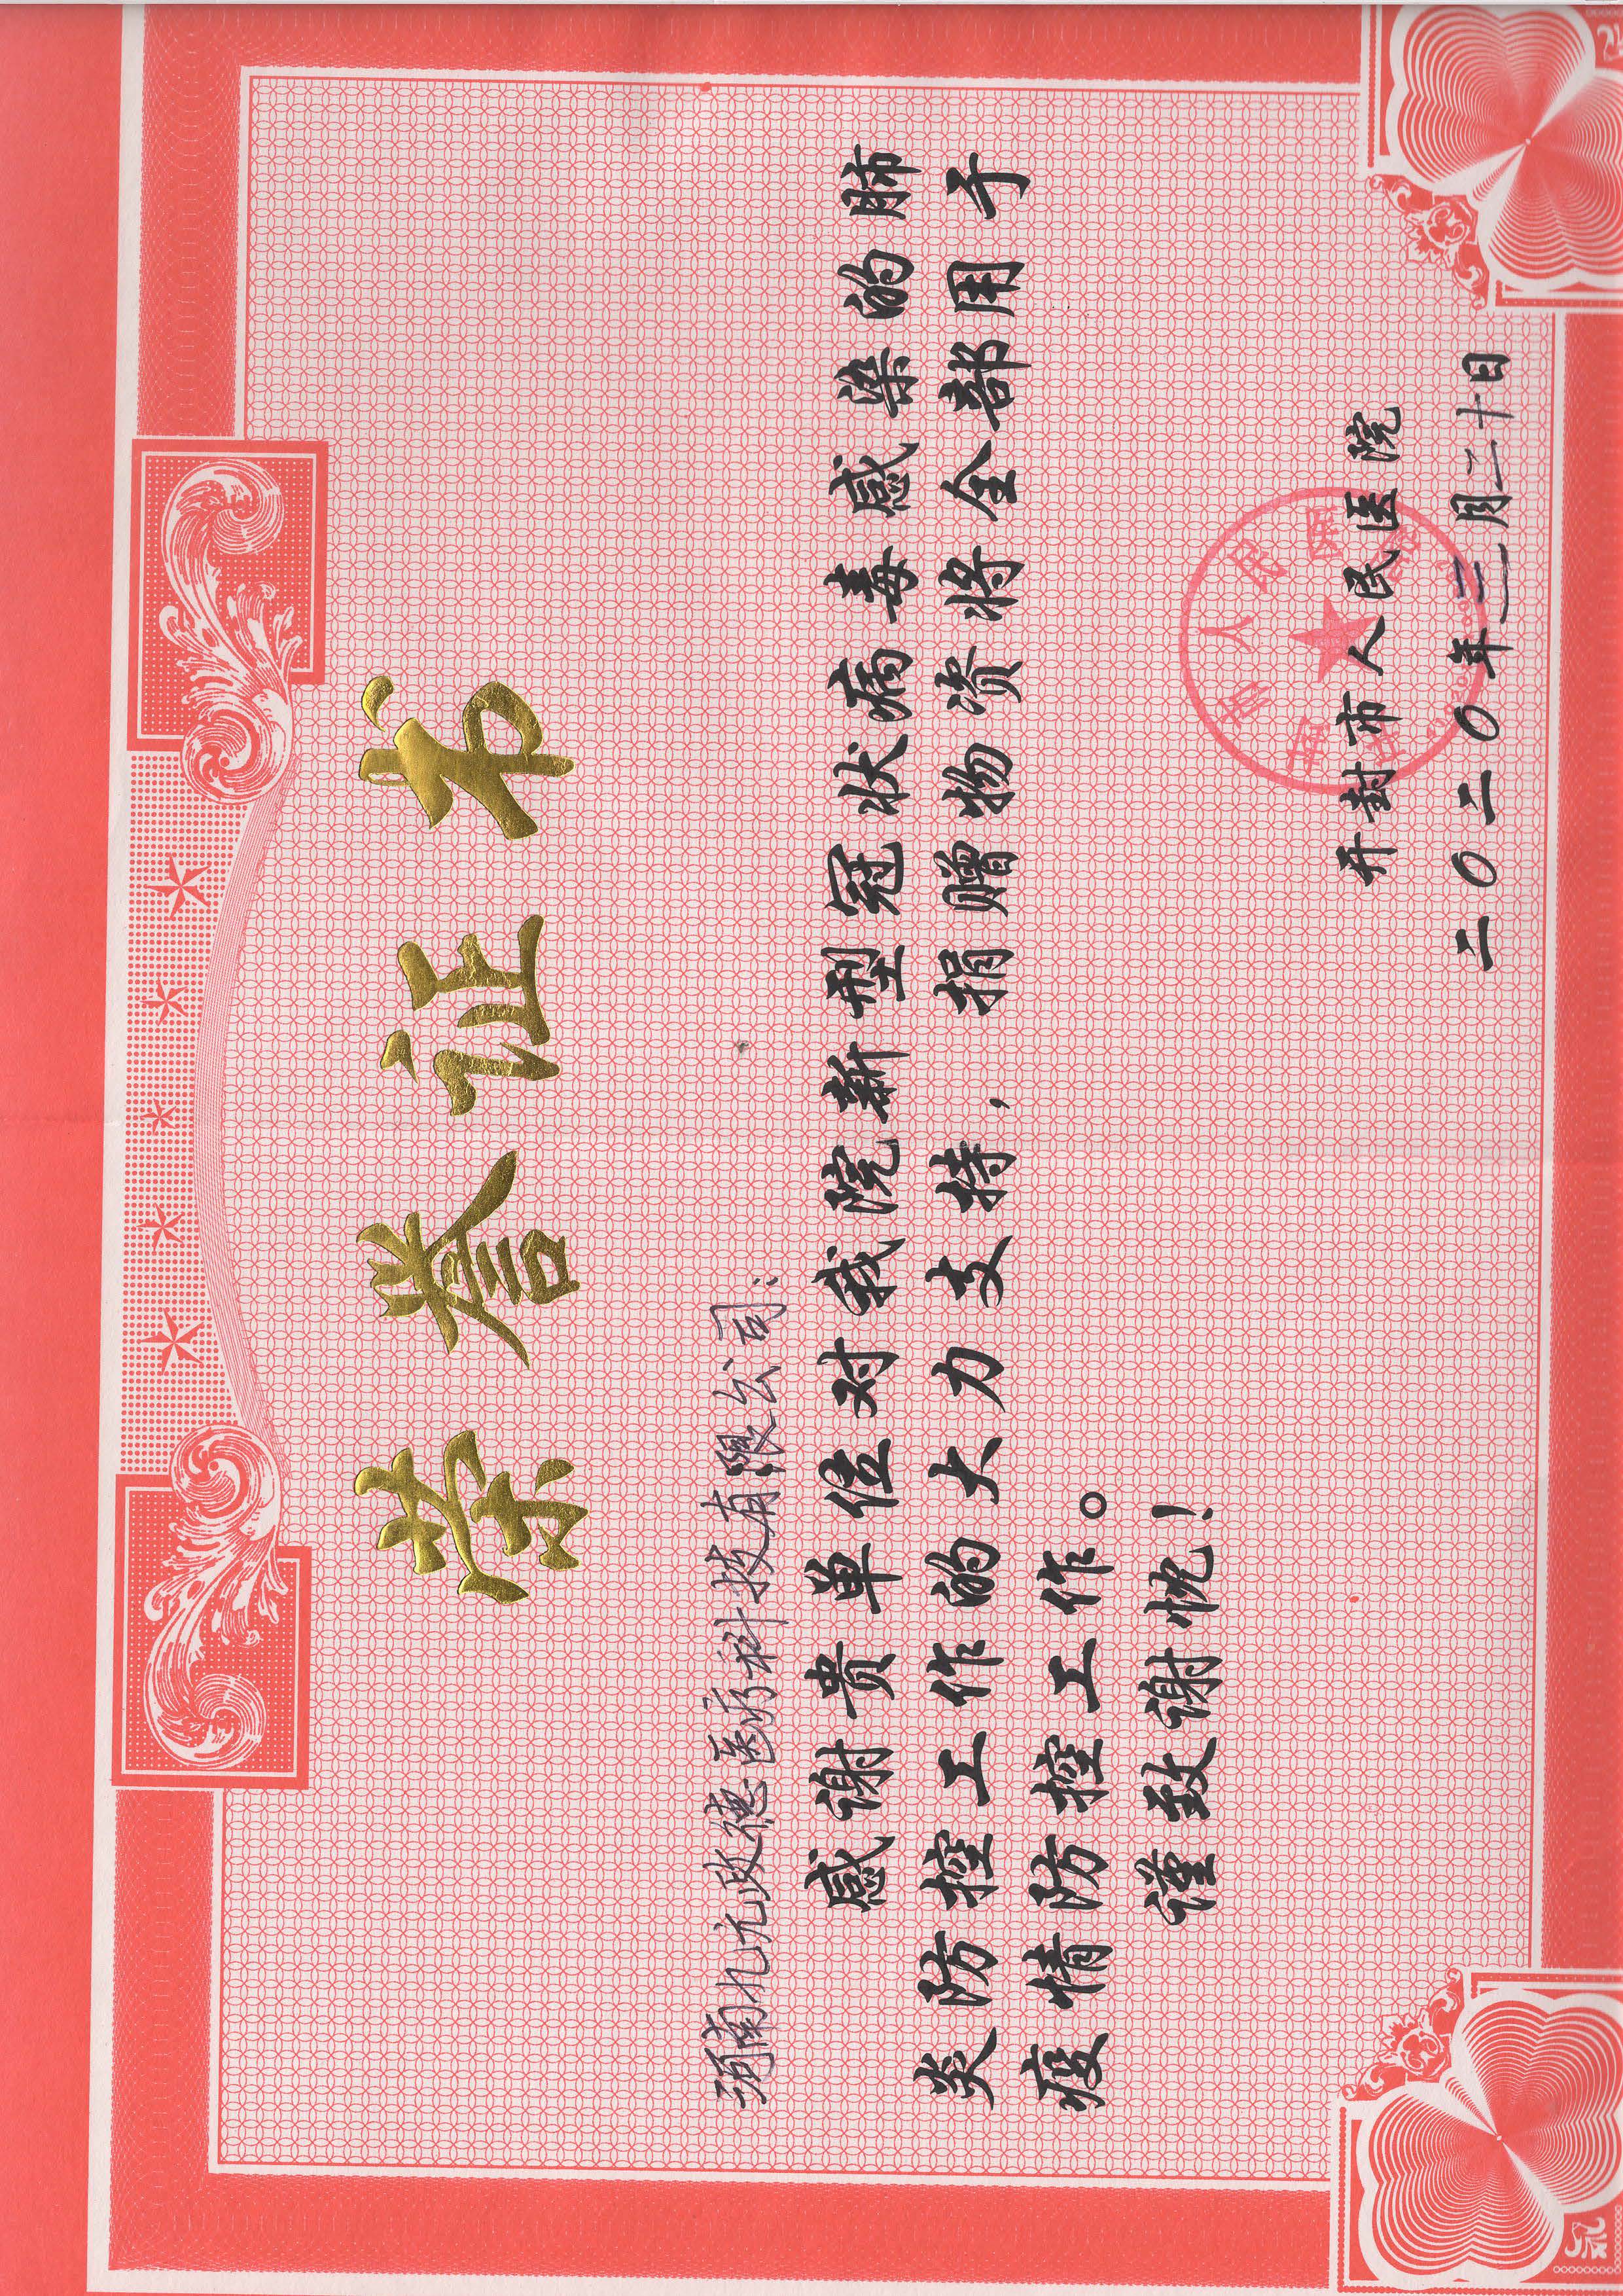 荣誉证书
河南九元政德医疗科技有限公司:
感谢贵单位对我院新型冠状病毒感染的肺
炎防控工作的大力支持,捐赠物资将全部用于
疫情防控工作。
谨致谢忱!
开封市人民医院
二〇二〇年三月二十日
开封市人民医院